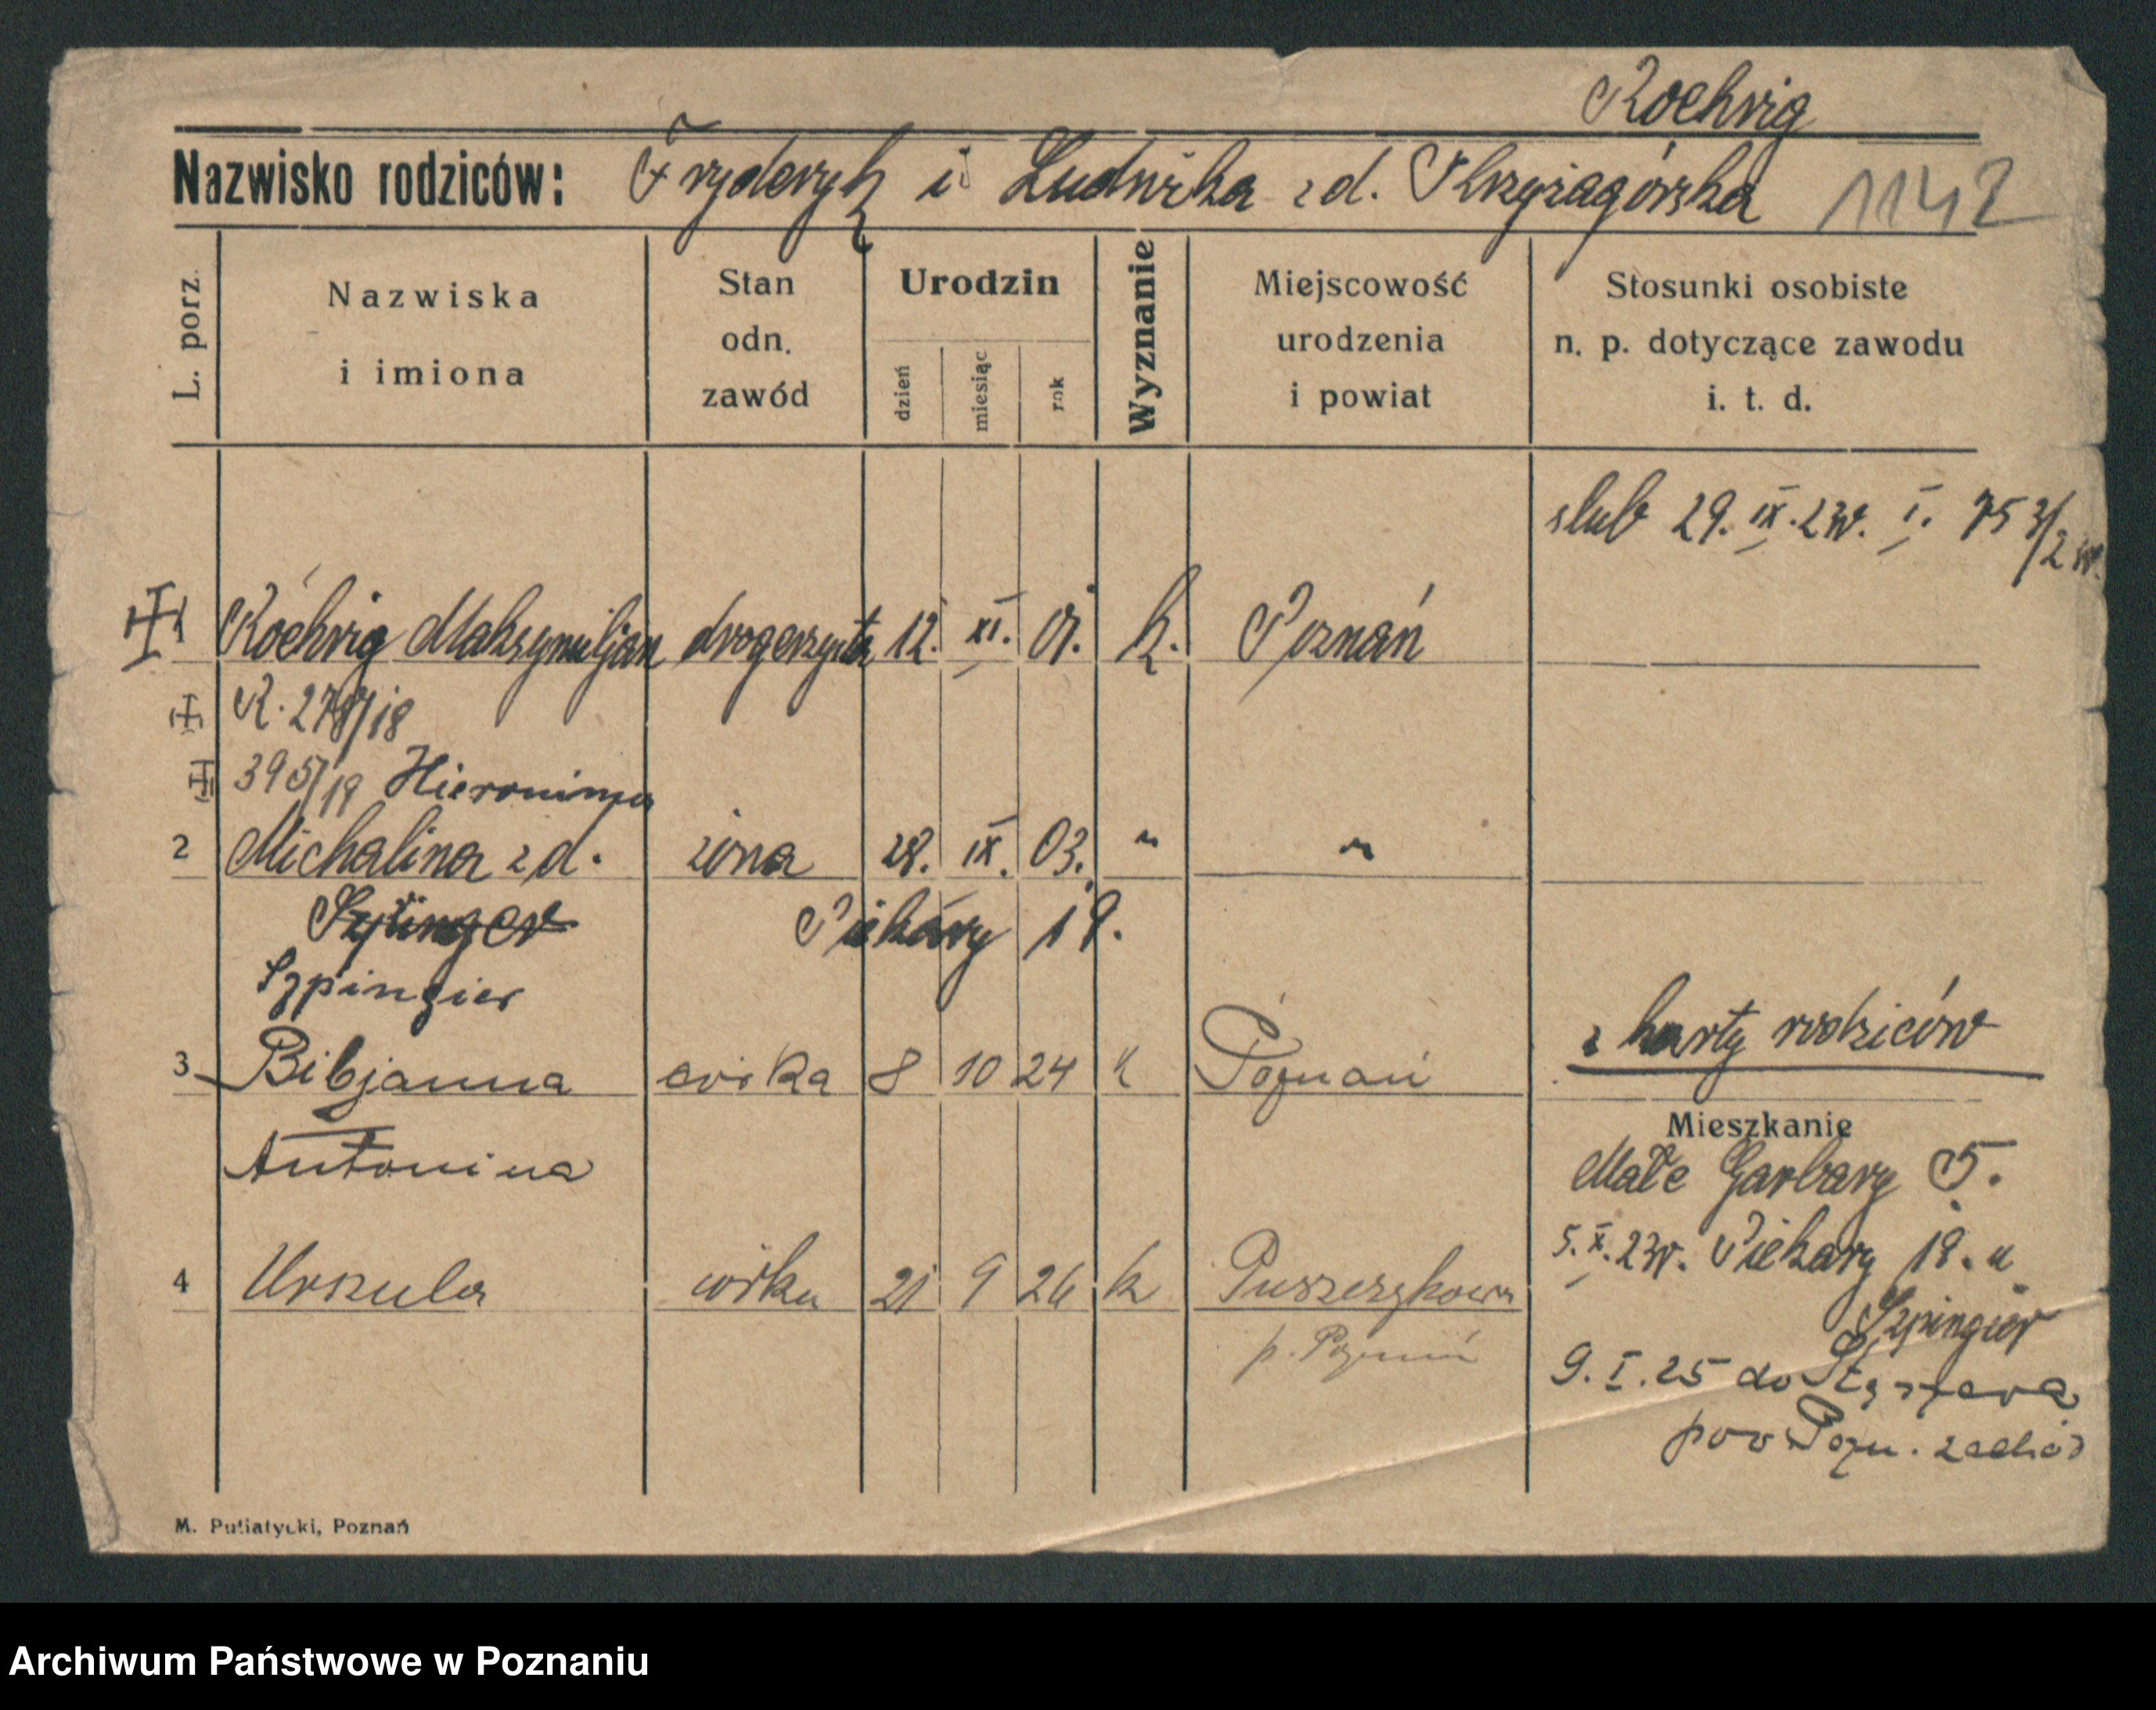 Roehrig
Nazwisko rodziców: Fryderyk i Ludwika zd. Skrzyżagórska 1142
L. porz. Nazwiska i imiona Stan odn. zawód Urodzin dzień miesiąc rok Wyznanie Miejscowość urodzenia i powiat Stosunki osobiste n. p. dotyczące zawodu i. t. d.
slub 29. IX. 23r. I. 753/23r.
1 Roehrig Maksymiljan drogerzysta 12. XI. 01. k. Poznań
R. 278/18
395/19 Hieronima
2 Michalina zd. żona 28. IX. 03. " "
Szpinger Piekary 19.
Szpingier
z karty rodziców
3 Bibjanna córka 8 10 24 k Poznań
Antonina
Mieszkanie
Małe Garbary 5.
5. X. 23r. Piekary 18. u
Szpingier
4 Urszula córka 21 9 26 k Puszczykowo
p. Poznań
9. I. 25 do
pow Pozn. zachód
M. Putiatycki, Poznań
Archiwum Państwowe w Poznaniu